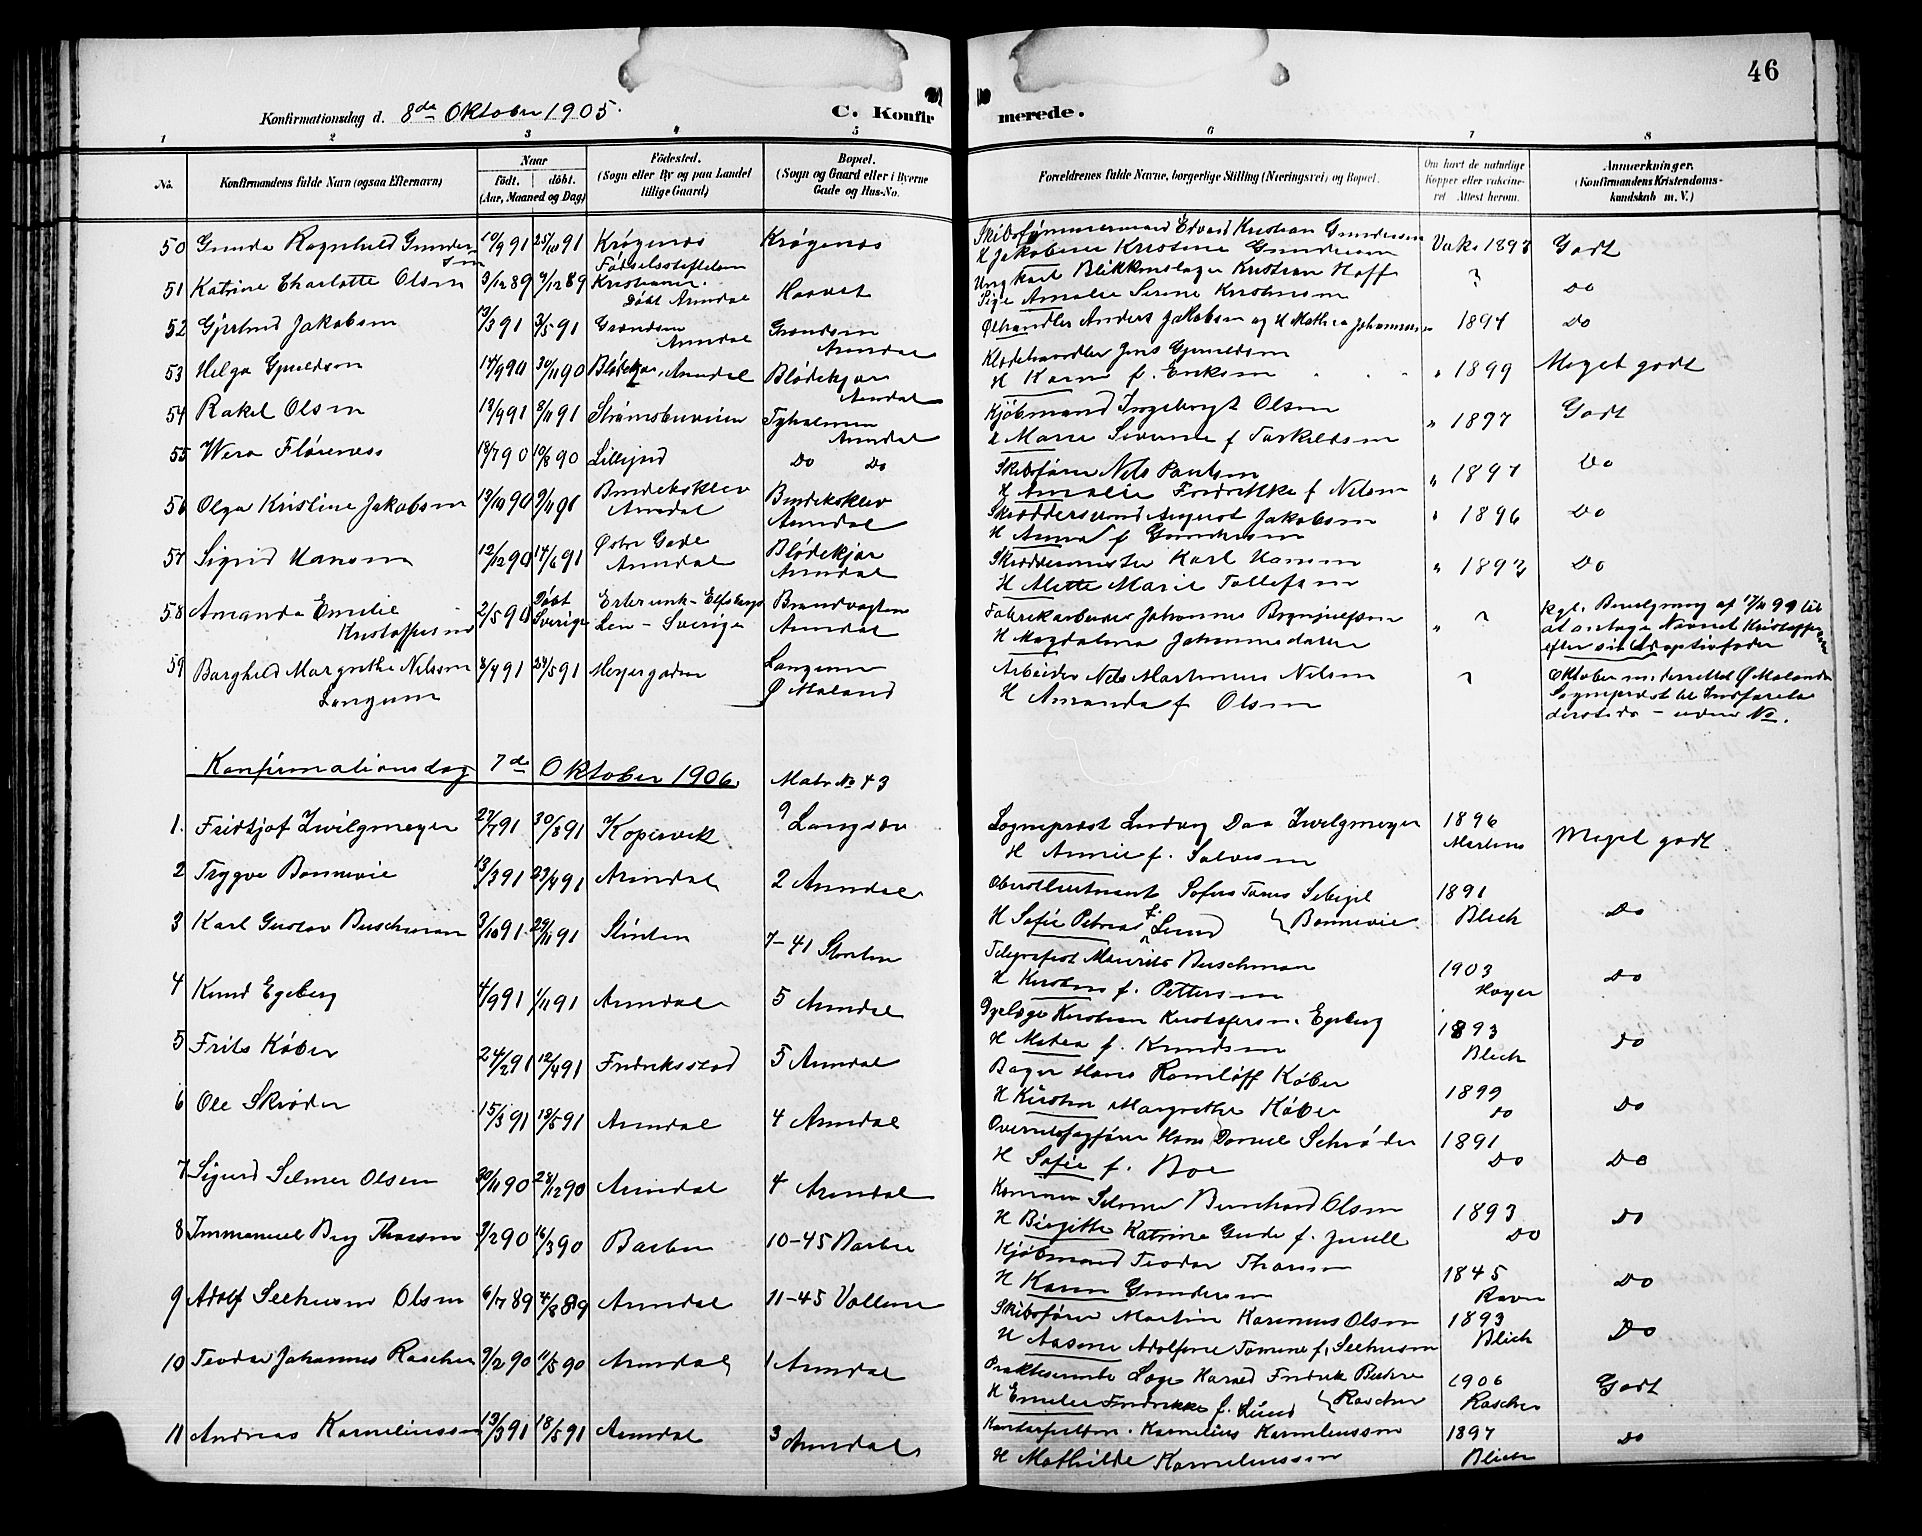 46
Konfirmationsdag d. 8de Oktober 1905.
C. Konfirmerede.
1 2 3 4 5 6 7 8
No.
Konfirmandens fulde Navn (ogsaa Efternavn)
Naar
født. døbt.
(Aar, Maaned og Dag)
Födested.
(Sogn eller By og paa Landet
tillige Gaard)
Bopæl.
(Sogn og Gaard eller i Byerne
Gade og Hus-No.
Forældrenes fulde Navne, borgerlige Stilling (Næringsvei) og Bopæl.
Om havt de naturlige
Kopper eller vakcine-
ret Attest herom.
Anmærkninger.
(Konfirmandens Kristendoms-
kundskab m. V.)
50 Gunda Ragnhild Gundersen 10/9 91 25/10 91 Krøgenes Krøgenes
Skibstømmermand Edvard Kristian Gundersen
H Jakobine Kristine Gundersen Vaks 1897 Godt
51 Katrine Charlotte Olsen 3/12 89 9/12 89 Fødselsstiftelsen
Kristiania.
Døbt Arendal Haavet
Ungkarl Blikkenslager Kristian Hoff
Pige Amalie Serine Kristensen ? Do
52 Gjertrud Jakobsen 13/3 91 3/5 91 Grændsen
Arendal Grændsen
Arendal
Ølhandler Anders Jakobsen og H Mathea Johannesen " 1894 Do
53 Helga Gjeruldsen 14/9 90 30/11 90 Blødekjær, Arendal Blødekjær
Arendal
Klædehandler Jens Gjeruldsen
H Karen f. Eriksen " 1899 Meget godt
54 Rakel Olsen 19/9 91 8/11 91 Strømsbuveien Tyholmen
Arendal
Kjøbmand Ingebrigt Olsen
H Marie Severine f Torkildsen " 1897 Godt
55 Wera Flørenæs 18/7 90 10/8 90 Lillejord Do Do
Skibsfører Nils Paulsen
H Amalie Fredrikke f Nilsen " 1897 Do
56 Olga Kristine Jakobsen 13/10 90 9/11 90 Bredeksklev
Arendal Bredeksklev
Arendal
Skræddersvend August Jakobsen
H Anna f Gundersen " 1896 Do
57 Sigrid Hansen 12/12 90 14/6 91 Østre Gade
Arendal Blødekjær
Arendal
Skræddermester Karl Hansen
H Alette Marie Tollefsen " 1897 Do
58 Amanda Emilie
Kristoffersen 2/5 90 Døbt
Sverige Elfsborgs
Len - Sverige Brandvagten
Arendal
Fabrikarbeider Johannes Brynjulfsen
H Magdalena Johannesdatter " ?
Kgl. Bevilgning af 17/11 99 til
at antage Navnet Kristoffersen
efter sin Adoptivfader
59 Borghild Margrethe Nilsen
Langum 8/4 91 24/5 91 Meyergaden Langum
Ø Moland
Arbeider Nils Martinus Nilsen
H Amanda f Olsen ?
Oktober m. Ø Moland
Sogneprest til Indførelse
dersteds - uden No.
Konfirmationsdag 7de Oktober 1906. Matr No 43
1. Fridtjof Zwilgmeyer 27/7 91 30/8 91 Kopervik 9 Langsæv
Sogneprest Ludvig Daa Zwilgmeyer
H Annie f. Salvesen 1896 Martens Meget godt
2 Trygve Bonnevie 13/3 91 23/4 91 Arendal 2 Arendal
Oberstleutnant Sofus Bonnevie
H Sofie Petrea f. Lund 1891 Blich Do
3 Karl Gustav Buschman 3/10 91 29/11 91 Slinten 7-41 Slinten
Telegrafist Mauritz Buschman
H Kirstine f. Pettersen 1903 Høyer Do
4 Knud Egeberg 4/9 91 1/11 91 Arendal 5 Arendal
Dyrlæge Kristian Kristofersen Egeberg
H Matea f. Knudsen 1893 Blich Do
5 Frits Køber 24/2 91 12/4 91 Fredriksstad 5 Arendal
Bager Hans Romlöff Køber
H Kirstine Margrethe Køber 1899 Do Do
6 Ole Skrøder 15/3 91 18/5 91 Arendal 4 Arendal
Overretssagfører Hans Daniel Schrøder
H Sofie f. Boe 1891 Do Do
7 Sigurd Selmer Olsen 30/11 90 28/12 90 Arendal 4 Arendal
Kemner Selmer Bernhard Olsen
H Birgitte Katrine Gude f. Juell 1893 Do Do
8 Immanuel Berg Thorsen 3/2 90 16/3 90 Barbu 10-45 Barbu
Kjøbmand Teodor Thorsen
H Karen Gundersen 1845 Ravn Do
9 Adolf Seehusen Olsen 6/7 89 4/8 89 Arendal 11-45 Vollene
Skibsfører Martin Karenius Olsen
H Aasene Adolfine Tomine f. Seehusen 1893 Blich Do
10 Teodor Johannes Rascher 9/2 90 11/5 90 Arendal 1 Arendal
Praktiserende Læge Harald Fredrik Rascher
H Emilie Fredrikke f. Lund 1906 Rascher Godt
11 Andreas Korneliussen 13/3 91 18/5 91 Arendal 3 Arendal
Kornelius Korneliussen
H Mathilde Korneliussen 1897 Blich Do